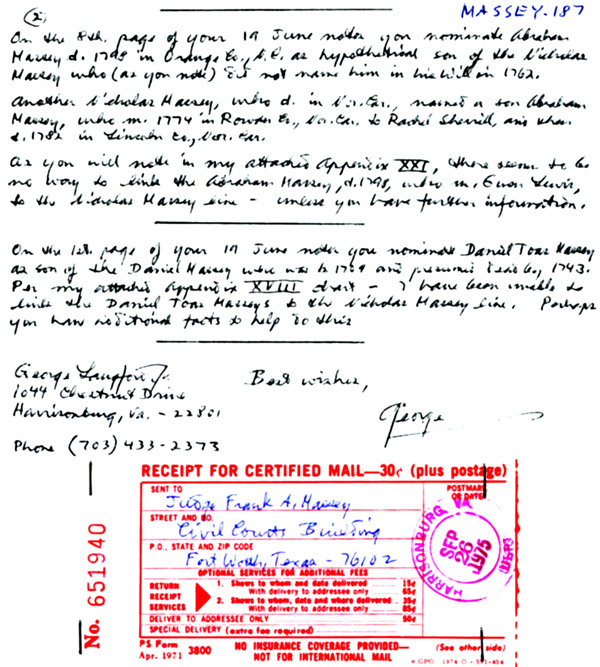 (2)
MASSEY-187
On the 8th. page of your 19 June notes you nominate Abraham
Massey d. 1798 in Orange Co., N.C. as hypothetical son of the Nicholas
Massey who (as you note) did not name him in his Will in 1762.
Another Nicholas Massey, who d. in Nor. Car., named a son Abraham
Massey, who m. 1774 in Rowan Co., Nor. Car. to Rachel Sherrill, and then
d. 1782 in Lincoln Co., Nor. Car.
As you will note in my attached Appendix XXI, there seem to be
no way to link the Abraham Massey, d. 1798, who m. Lewis,
to the Nicholas Massey line - unless you have further information.
On the 1st. page of your 19 June notes you nominate Daniel Toas Massey
as son of the Daniel Massey who was b 1709 and presumed dead by 1743.
Per my attached appendix XVIII chart - I have been unable to
link the Daniel Toas Masseys to the Nicholas Massey line. Perhaps
you have additional facts to help do this
George Langford Jr.
1044 Chestnut Drive
Harrisonburg, Va. - 22801
Phone (703) 433-2373
Best wishes,
George
RECEIPT FOR CERTIFIED MAIL—30¢ (plus postage)
SENT TO
Judge Frank A. Massey
POSTMARK
OR DATE
STREET AND NO.
Civil Courts Building
P.O., STATE AND ZIP CODE
Fort Worth, Texas - 76102
OPTIONAL SERVICES FOR ADDITIONAL FEES
RETURN
RECEIPT
SERVICES
1. Shows to whom and date delivered 15¢
With delivery to addressee only 65¢
2. Shows to whom, date and where delivered 35¢
With delivery to addressee only 85¢
DELIVER TO ADDRESSEE ONLY 50¢
SPECIAL DELIVERY (extra fee required)
PS Form
Apr. 1971 3800
NO INSURANCE COVERAGE PROVIDED—
NOT FOR INTERNATIONAL MAIL
(See other side)
No. 651940
HARRISONBURG VA
SEP
26
1975